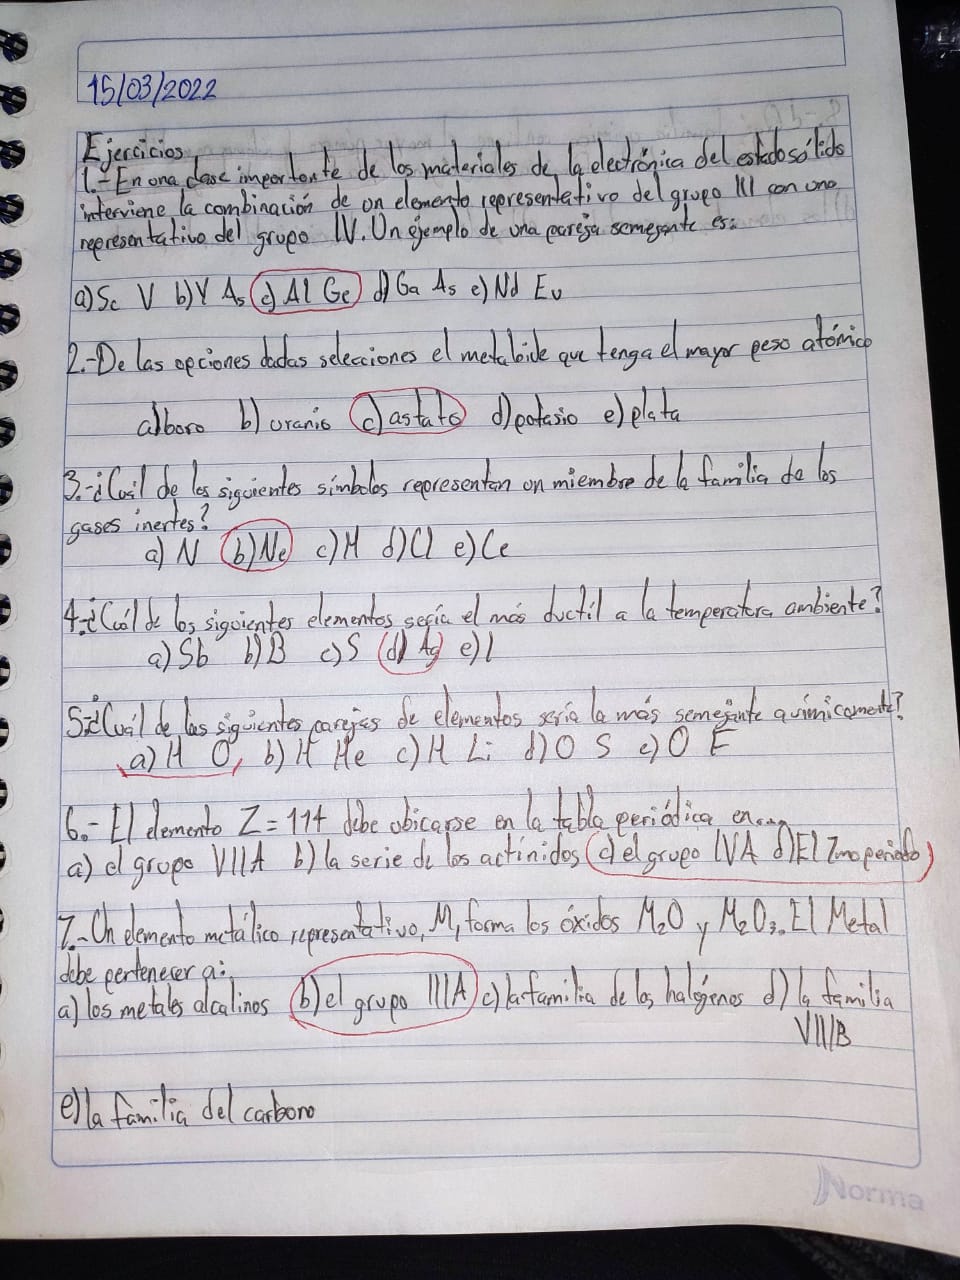 15/03/2022
Ejercicios
1.-En una clase importante de los materiales de la electrónica del estado sólido
interviene la combinación de un elemento representativo del grupo III con uno
representativo del grupo IV. Un ejemplo de una pareja semejante es:
a) Sc V b) Y As c) Al Ge d) Ga As e) Nd Eu
2.-De las opciones dadas selecciones el metaloide que tenga el mayor peso atómico
a) boro b) uranio c) astato d) potasio e) plata
3.-¿Cuál de los siguientes símbolos representan un miembro de la familia de los
gases inertes?
a) N b) Ne c) H d) Cl e) Ce
4.-¿Cuál de los siguientes elementos sería el más ductil a la temperatura ambiente?
a) Sb b) B c) S d) Ag e) I
5.-¿Cuál de las siguientes parejas de elementos sería la más semejante químicamente?
a) H O, b) H He c) H Li d) O S e) O F
6.-El elemento Z=114 debe ubicarse en la tabla periódica en...
a) el grupo VIIA b) la serie de los actínidos c) el grupo IVA d) El 7mo periodo
7.-Un elemento metálico representativo, M, forma los óxidos M₂O y M₂O₃. El Metal
debe pertenecer a:
a) los metales alcalinos b) el grupo IIIA c) la familia de los halógenos d) la familia
VIIIB
e) la familia del carbono
Norma